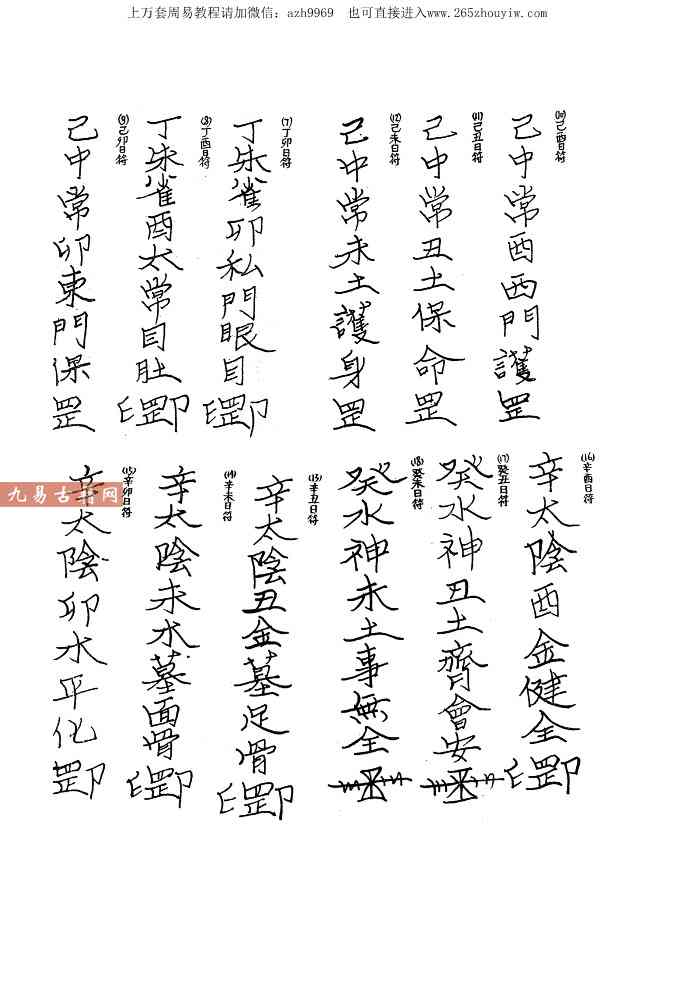 上万套周易教程请加微信：azh9969 也可直接进入www.265zhouyiw.com
(7)丁卯日符
丁朱雀卯私門眼目
(8)丁酉日符
丁朱雀酉太常目肚
(9)己卯日符
己中常卯東門保罡
(10)己酉日符
己中常酉西門護罡
(11)己丑日符
己中常丑土保命罡
(12)己未日符
己中常未土護身罡
(13)辛丑日符
辛太陰丑金墓足骨
(14)辛未日符
辛太陰未木墓面骨
(15)辛卯日符
辛太陰卯水平化
(16)辛酉日符
辛太陰酉金健全
(17)癸丑日符
癸水神丑土齊會安
(18)癸未日符
癸水神未土事無全
九易古籍网